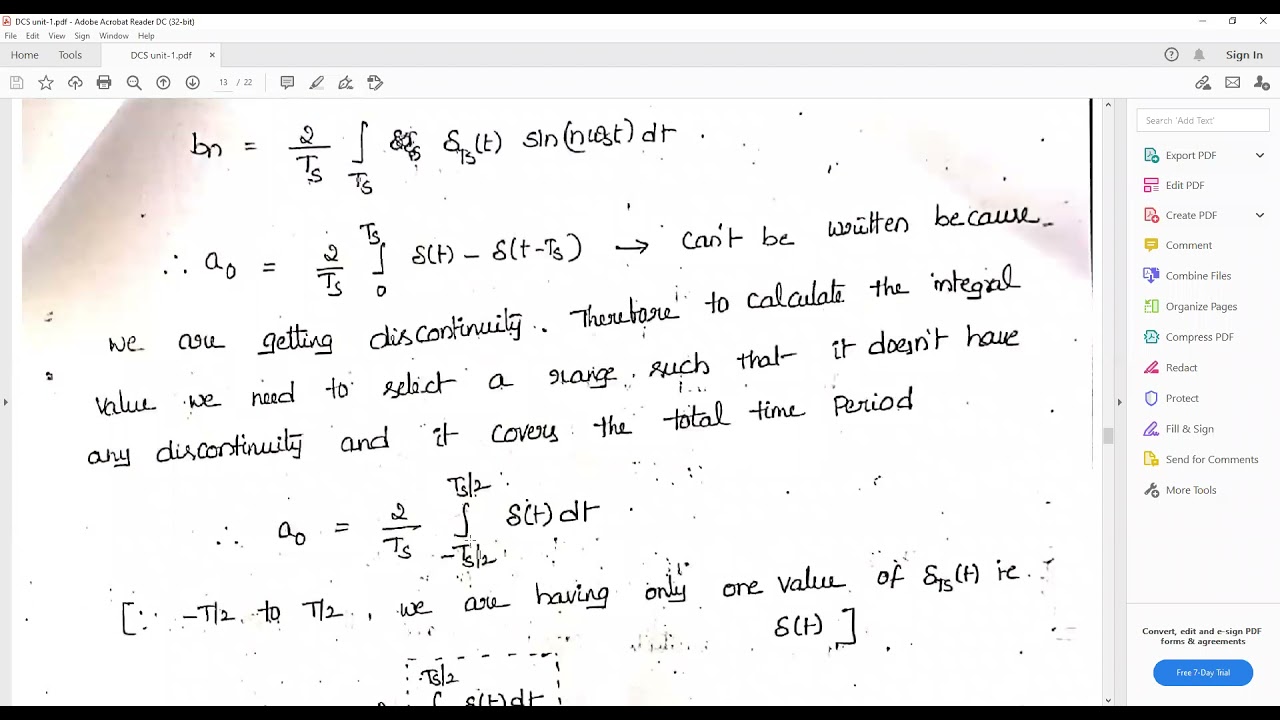 DCS unit-1.pdf - Adobe Acrobat Reader DC (32-bit)
File Edit View Sign Window Help
Home Tools DCS unit-1.pdf × Sign In
13 / 22
bn = 2/Ts ∫Ts δTs(t) sin(nωst) dt .
∴ a0 = 2/Ts ∫0^Ts δ(t) - δ(t-Ts) → can't be written because
we are getting discontinuity. Therefore to calculate the integral
value we need to select a range such that it doesn't have
any discontinuity and it covers the total time period
∴ a0 = 2/Ts ∫-Ts/2^Ts/2 δ(t) dt .
[∵ -T/2 to T/2, we are having only one value of δTs(t) ie
δ(t) ]
Ts/2
∫ δ(t) dt
Search 'Add Text'
Export PDF
Edit PDF
Create PDF
Comment
Combine Files
Organize Pages
Compress PDF
Redact
Protect
Fill & Sign
Send for Comments
More Tools
Convert, edit and e-sign PDF
forms & agreements
Free 7-Day Trial